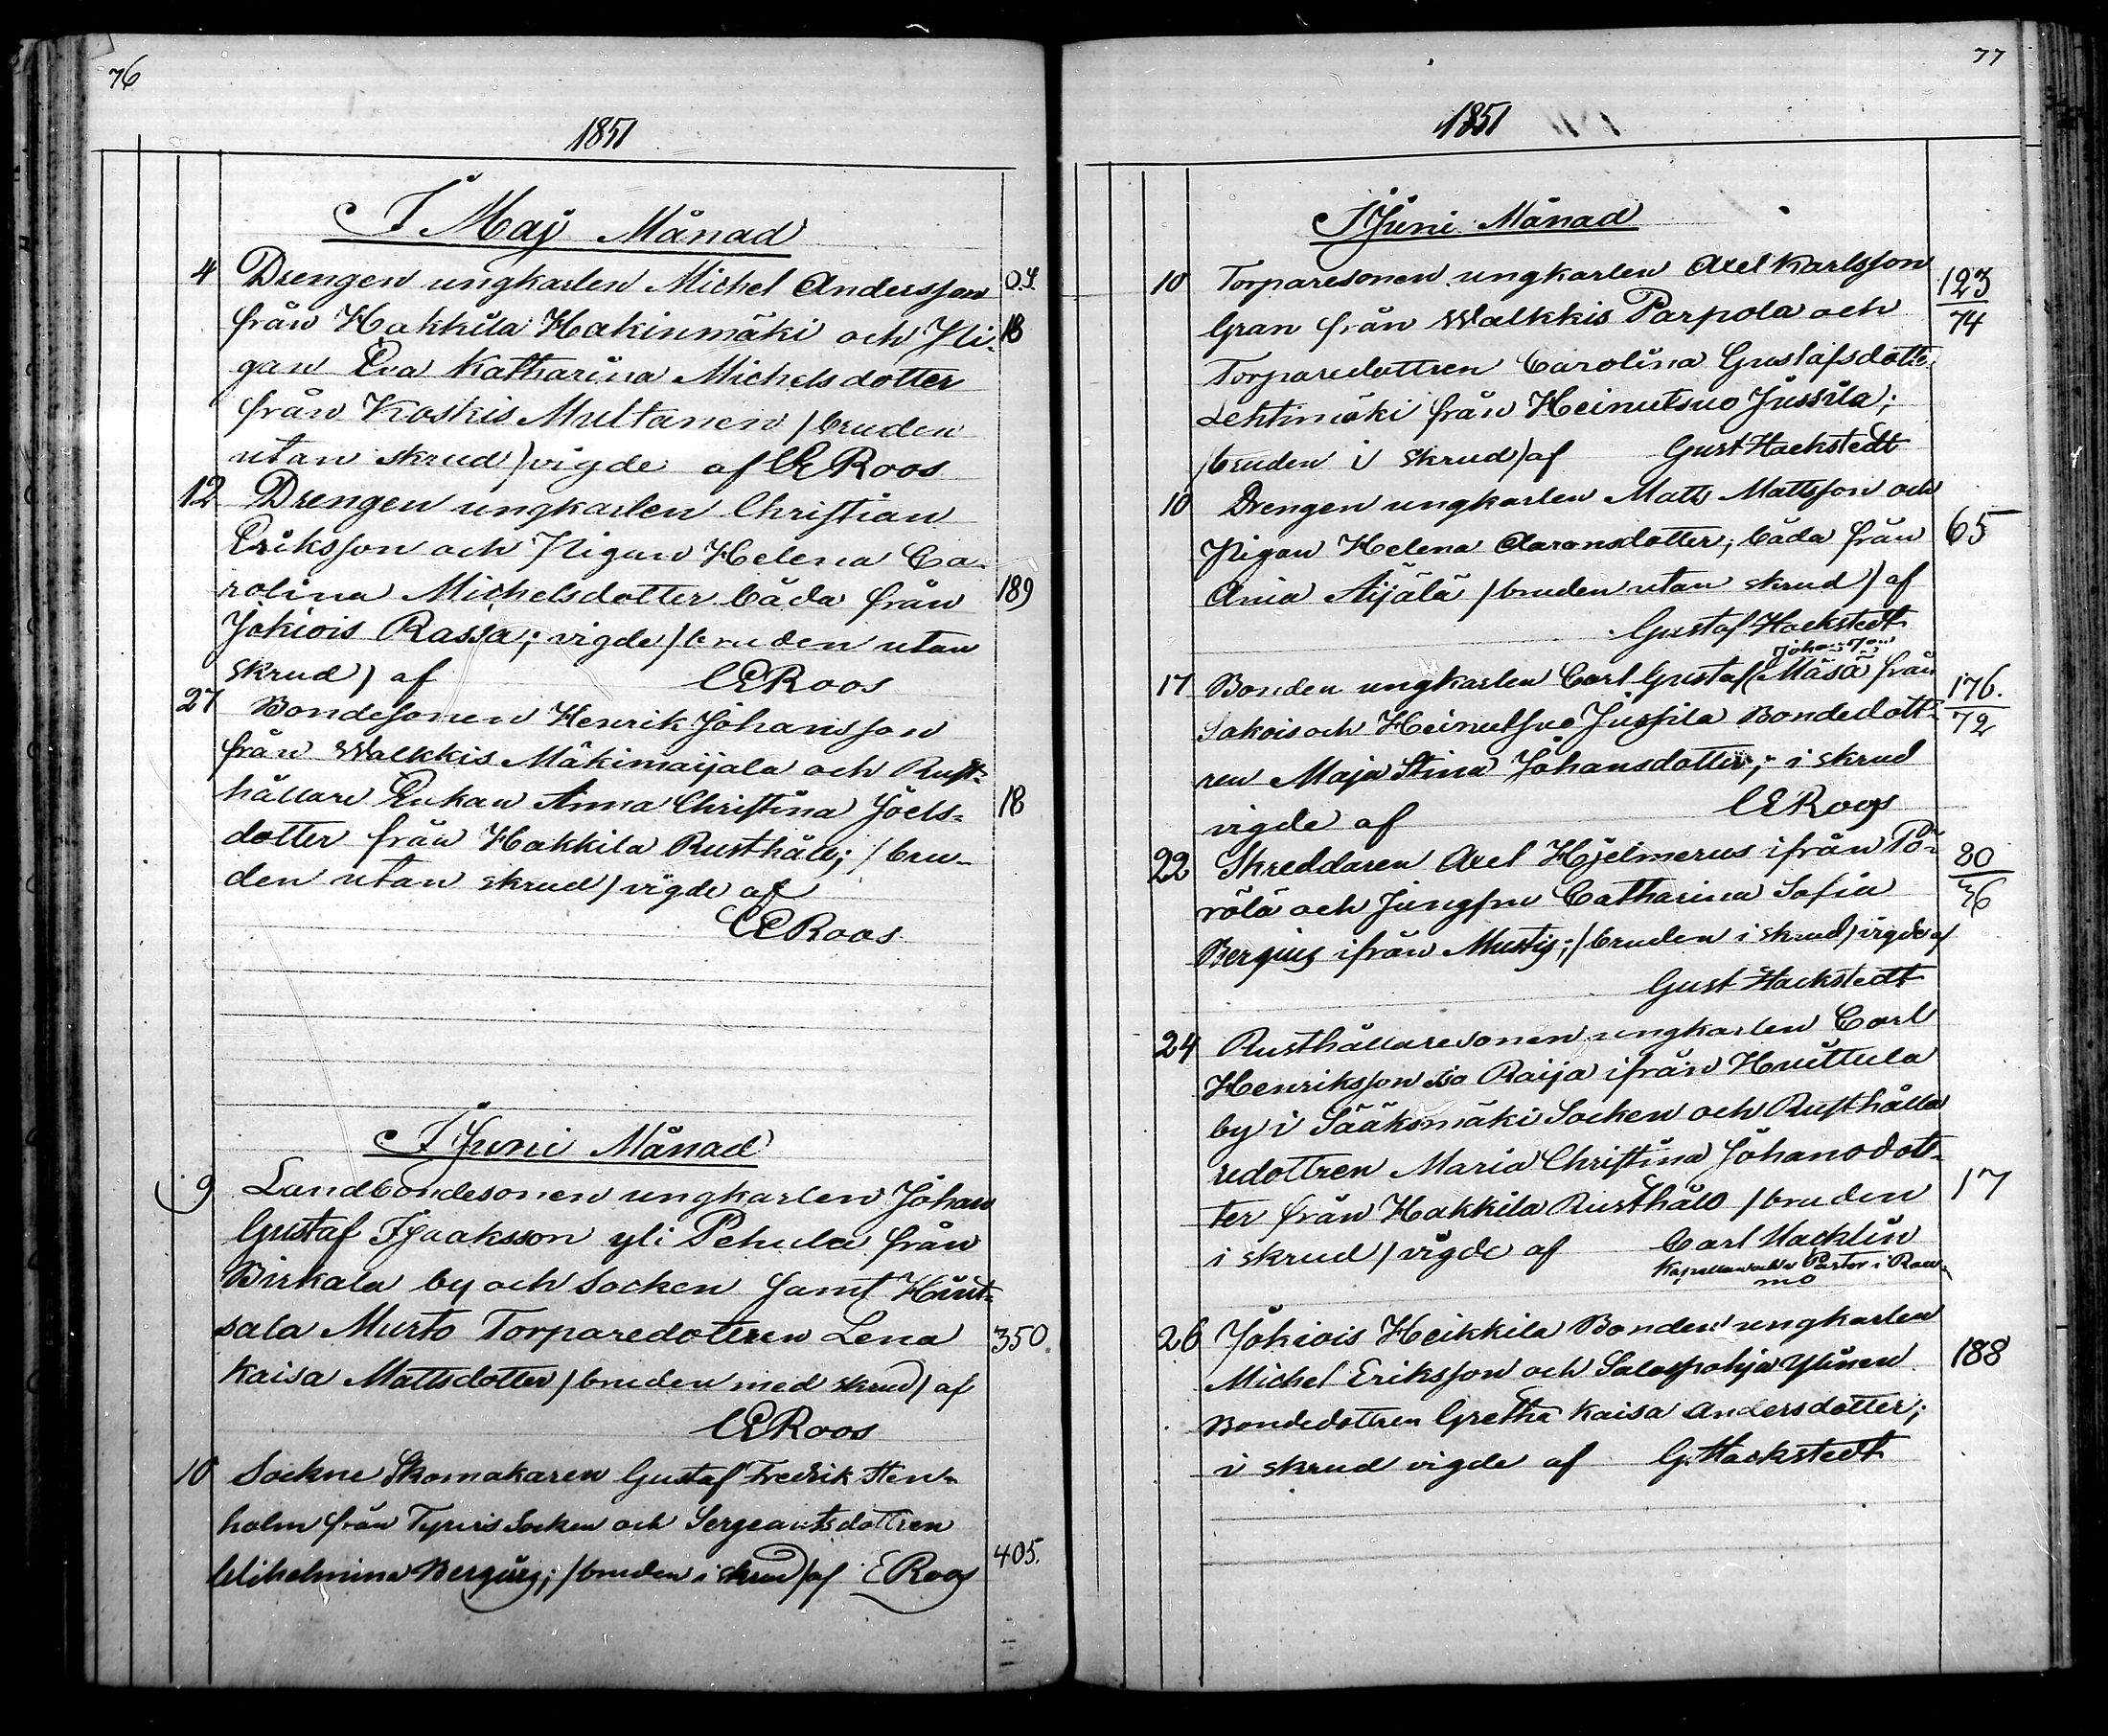 76
1851
I Maj Månad
4 Drengen ungkarlen Michel Andersson O.S.
från Hakkila Hakinmäki och Pi- 18
gan Eva Katharina Michelsdotter
från Koskis Multanen /bruden
utan skrud/ vigde af CE Roos
12 Drengen ungkarlen Christian
Eriksson och Pigan Helena Ca-
rolina Michelsdotter båda från 189
Jokiois Rassa; vigde /bruden utan
skrud/ af CE Roos
27 Bondesonen Henrik Johansson
från Walkkis Mäkimaijala och Rust-
hållare Enkan Anna Christina Joels- 18
dotter från Hakkila Rusthåll; /bru-
den utan skrud/ vigde af
CE Roos
I Juni Månad
9 Landbondesonen ungkarlen Johan
Gustaf Isaaksson yli Pehula från
Birkala by och Socken samt
sala Murto Torparedottren Lena 350.
Kaisa Mattsdotter /bruden med skrud/ af
CE Roos
10 Sockne Skomakaren Gustaf Fredrik Sten-
holm från Socken och Sergeantsdottren
Wilhelmina Bergius; /bruden i skrud/ af E Roos 405.
77
1851
I Juni Månad
10 Torparesonen ungkarlen Axel Karlsson 123
Gran från Walkkis Parpola och 74
Torparedottren Carolina Gustafsdotter
Lehtimäki från Heinutsuo Jussila;
/bruden i skrud/ af Gust Hackstedt
10 Drengen ungkarlen Matts Mattsson och
Pigan Helena Aaronsdotter; båda från 65
Ania Äijälä /bruden utan skrud/ af
Gustaf Hackstedt
Johansson
17 Bonden ungkarlen Carl Gustaf Mäsä från 176.
Sakois och Heinutsuo Jussila Bondedott- 72
ren Maja Stina Johansdotter; i skrud
vigde af CE Roos
22 Skreddaren Axel Hjelmerus ifrån Pö- 20
rölä och Jungfru Catharina Sofia 36
Bergius ifrån Mustis; /bruden i skrud/ vigde af
Gust Hackstedt
24 Rusthållaresonen ungkarlen Carl
Henriksson iso Raija ifrån Huittula
by i Sääksmäki Socken och Rusthålla
redottren Maria Christina Johansdott-
ter från Hakkila Rusthåll /bruden 17
i skrud/ vigde af Carl Hacklin
Pastor i Rau-
mo
26 Jokiois Heikkila Bonden ungkarlen
Michel Eriksson och Salospohja Ylinen 188
Bondedottren Gretha Kaisa Andersdotter;
i skrud vigde af G. Hackstedt